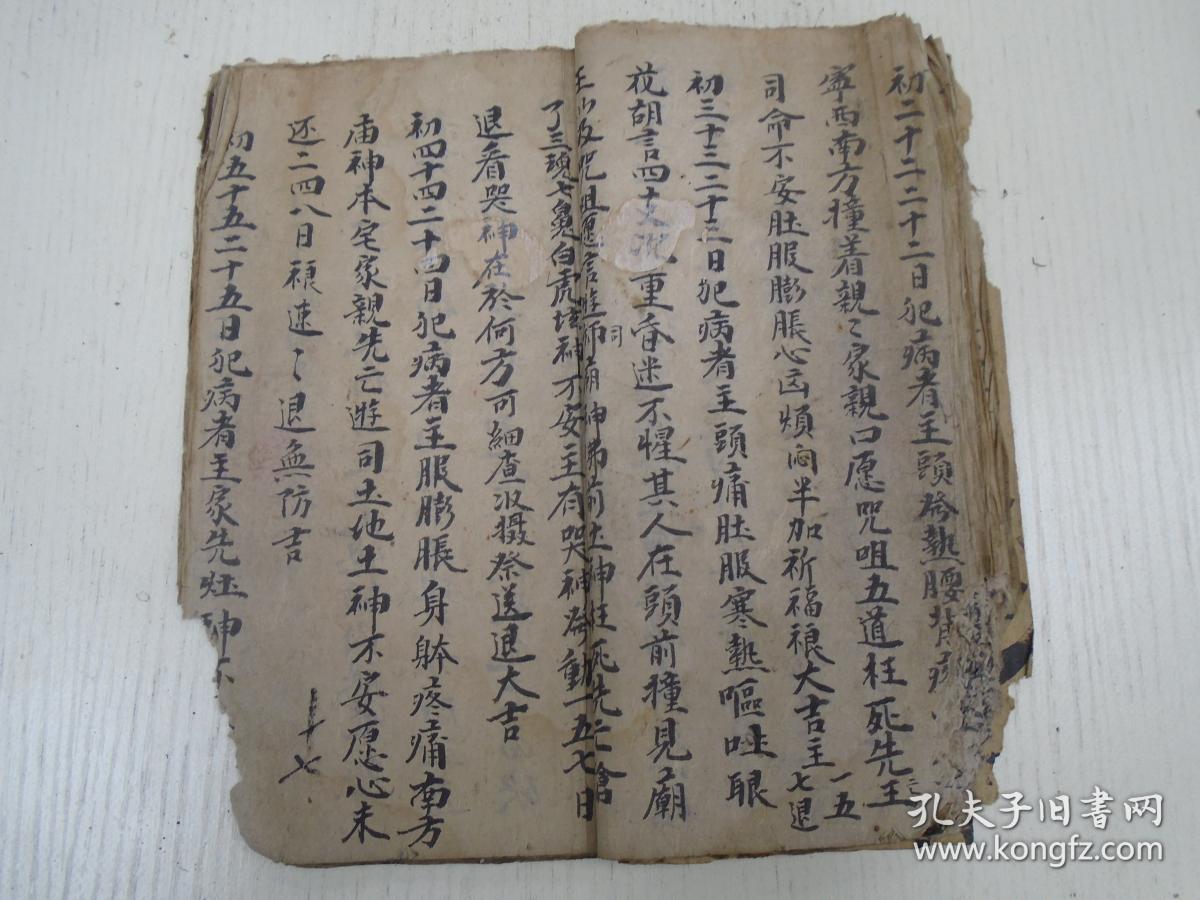 初二十二二十二日犯病者主頭發熱腰背疼
寧西南方撞着親〻家親口愿咒咀五道枉死先王
司命不安肚服膨脹心凶煩悶半加祈福禳大吉主一五七退
初三十三二十三日犯病者主頭痛肚服寒熱嘔吐眼
花胡言四
重昏迷不惺其人在頭前撞見廟
咒咀
師廟神
前
神枉死先亡
了三頭七鼻白虎
神不安主有哭神發動一五七日
退看哭神在於何方可細查收攝祭送退大吉
初四十四二十四日犯病者主服膨脹身躰疼痛南方
庙神本宅家親先亡遊司土地土神不安愿心未
还二四八日禳送〻退無防吉
初五十五二十五日犯病者主家先灶神不
孔夫子旧书网
www.kongfz.com